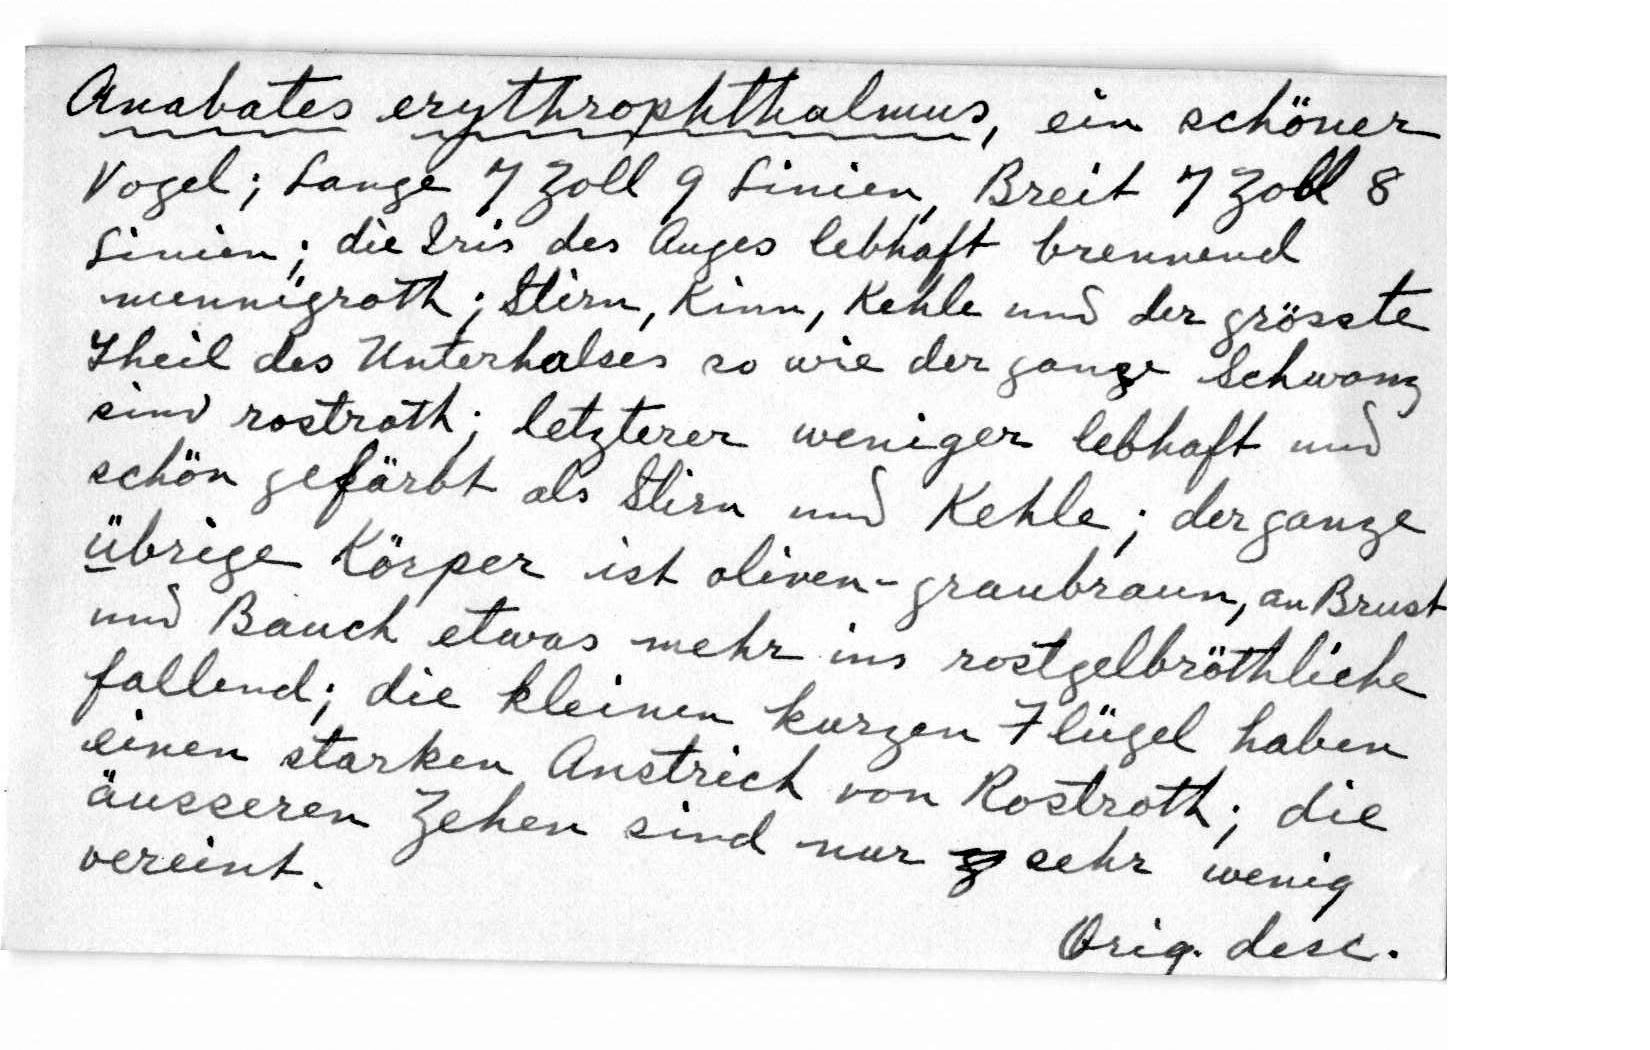 Anabates erythrophthalmus, ein schöner
Vogel; Lange 7 Zoll 9 Linien, Breit 7 Zoll 8
Linien; die Iris des Auges lebhaft brennend
mennigroth; Stirn, Kinn, Kehle und der grösste
Theil des Unterhalses so wie der ganze Schwanz
sind rostroth; letzterer weniger lebhaft und
schön gefärbt als Stirn und Kehle; der ganze
übrige Körper ist oliven-graubraun, an Brust
und Bauch etwas mehr ins rostgelbröthliche
fallend; die kleinen kurzen Flügel haben
einen starken Anstrich von Rostroth; die
äusseren Zehen sind nur sehr wenig
vereint.
Orig. desc.